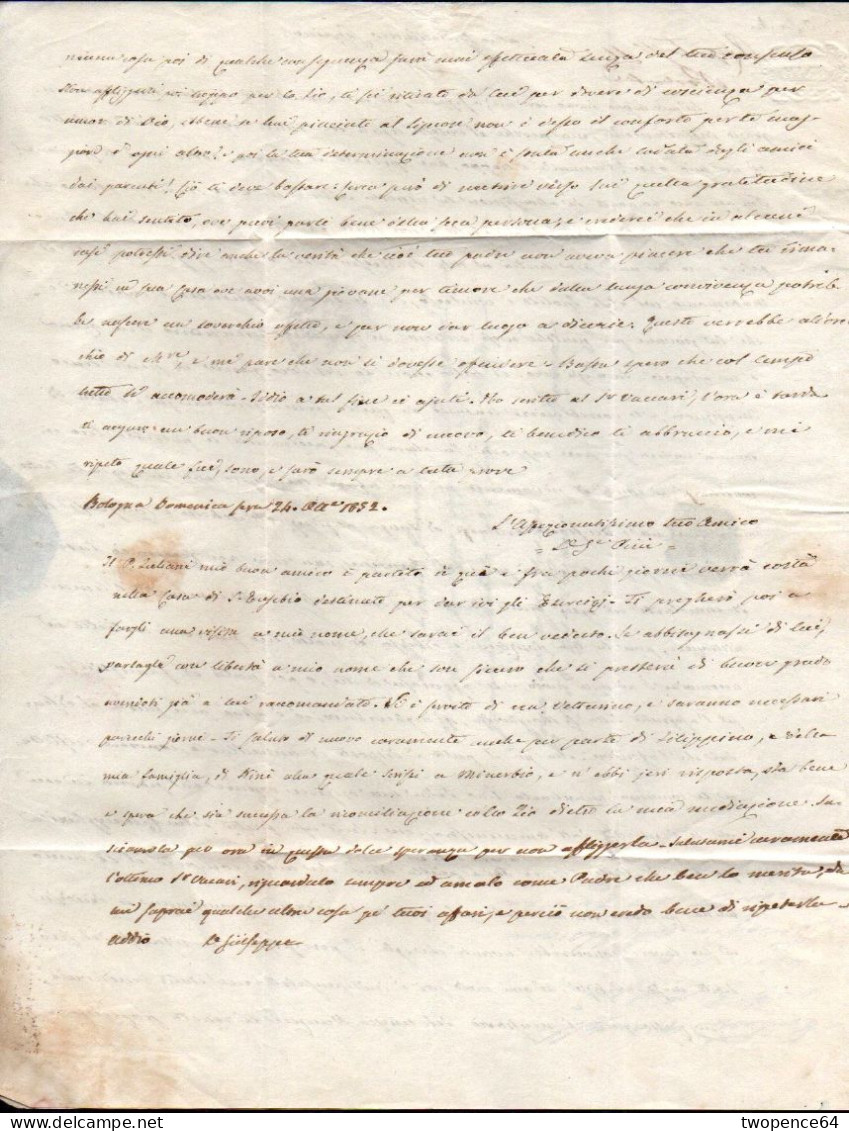 niuna cosa poi di qualche conseguenza sarà mai effettuata senza del tuo consenso
Non affliggerti poi troppo per lo Zio, ti sei ritirato da lui per dovere di coscienza per
amor di Dio, ebbene se hai piaciuto al Signore non è desso il conforto per te mag-
giore d'ogni altro? e poi la tua determinazione non è stata anche lodata dagli amici
dai parenti! Ciò ti deve bastare: cerca però di nutrire verso lui quella gratitudine
che hai sentito, ove puoi parla bene della sua persona, e crederei che in alcuni
casi potessi dire anche la verità che cioè tuo padre non aveva piacere che tu rima-
nessi in sua casa ove avvi una giovane per timore che dalla lunga convivenza potreb
be nascere un soverchio affetto, e per non dar luogo a dicerie. Questo verrebbe all'orec-
chio di, e mi pare che non si dovesse offendere. Basta spero che col tempo
tutto si accomoderà. Iddio a tal fine ci ajuti. Ho scritto al Sr Vaccari, l'ora è tarda
ti auguro un buon riposo, ti ringrazio di nuovo, ti benedico ti abbraccio, e mi
ripeto quale fui, sono, e sarò sempre a tutte prove
Bologna Domenica sera 24. Ott.e 1852.
L'Affezionatissimo tuo Amico
Il P. Giuliani mio buon amico è partito di quà e fra pochi giorni verrà costà
nella Casa di S. Eusebio destinato per dar ivi gli Esercizj. Ti pregherei poi a
fargli una visita a mio nome, che sarai il ben veduto. Se abbisognassi di lui,
parlagli con libertà a mio nome che son sicuro che si presterà di buon grado
avendoti già a lui raccomandato. Si è servito di un Vetturino, e saranno necessari
parecchi giorni. Ti saluto di nuovo caramente anche per parte di Filippino, e della
mia famiglia, di Nini alla quale scrissi a Minerbio, e n'ebbi jeri risposta, sta bene
e spera che sia successa la riconciliazione collo Zio dietro la mia mediazione. La-
sciamola per ora in questa dolce speranza per non affliggerla. Salutami caramente
l'ottimo Sr Vaccari, riguardalo sempre ed amalo come Padre che ben lo merita, da
lui saprai qualche altra cosa pe' tuoi affari, e perciò non credo bene di ripeterla.
addio Giuseppe
twopence64